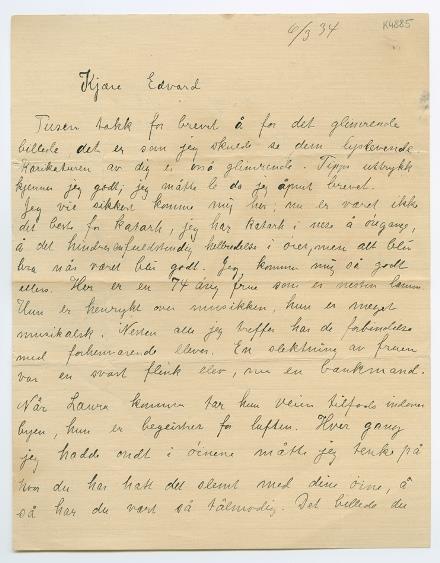 6/3 34
K4885
Kjære Edvard
Tusen takk for brevet å for det glimrende
billede det er som jeg skulde se dem lyslevende.
Karikaturen av dig er også glimrende. Tipps uttrykk
kjenner jeg godt, jeg måtte le da jeg åpnet brevet.
Jeg vil sikkert komme mig her; nu er været ikke
det beste for katarh, jeg har katarh i nese å
å det hindrer helbredelse i men alt blir
bra når været blir godt. Jeg kommer mig så godt
ellers. Her er en 74 årig frue som er nesten
Hun er henrykt over musikken, hun er meget
musikalsk. Nesten alle jeg treffer har de forbindelse
med forhenværende elever. En slektning av fruen
var en svært flink elev, nu en bankmand.
Når Laura kommer tar hun veien tilfods
byen, hun er begeistret for luften. Hver gang
jeg hadde ondt i öinene måtte jeg tenke på
hvor du har hatt det slemt med dine öine, å
så har du vært så tålmodig. Det billede du